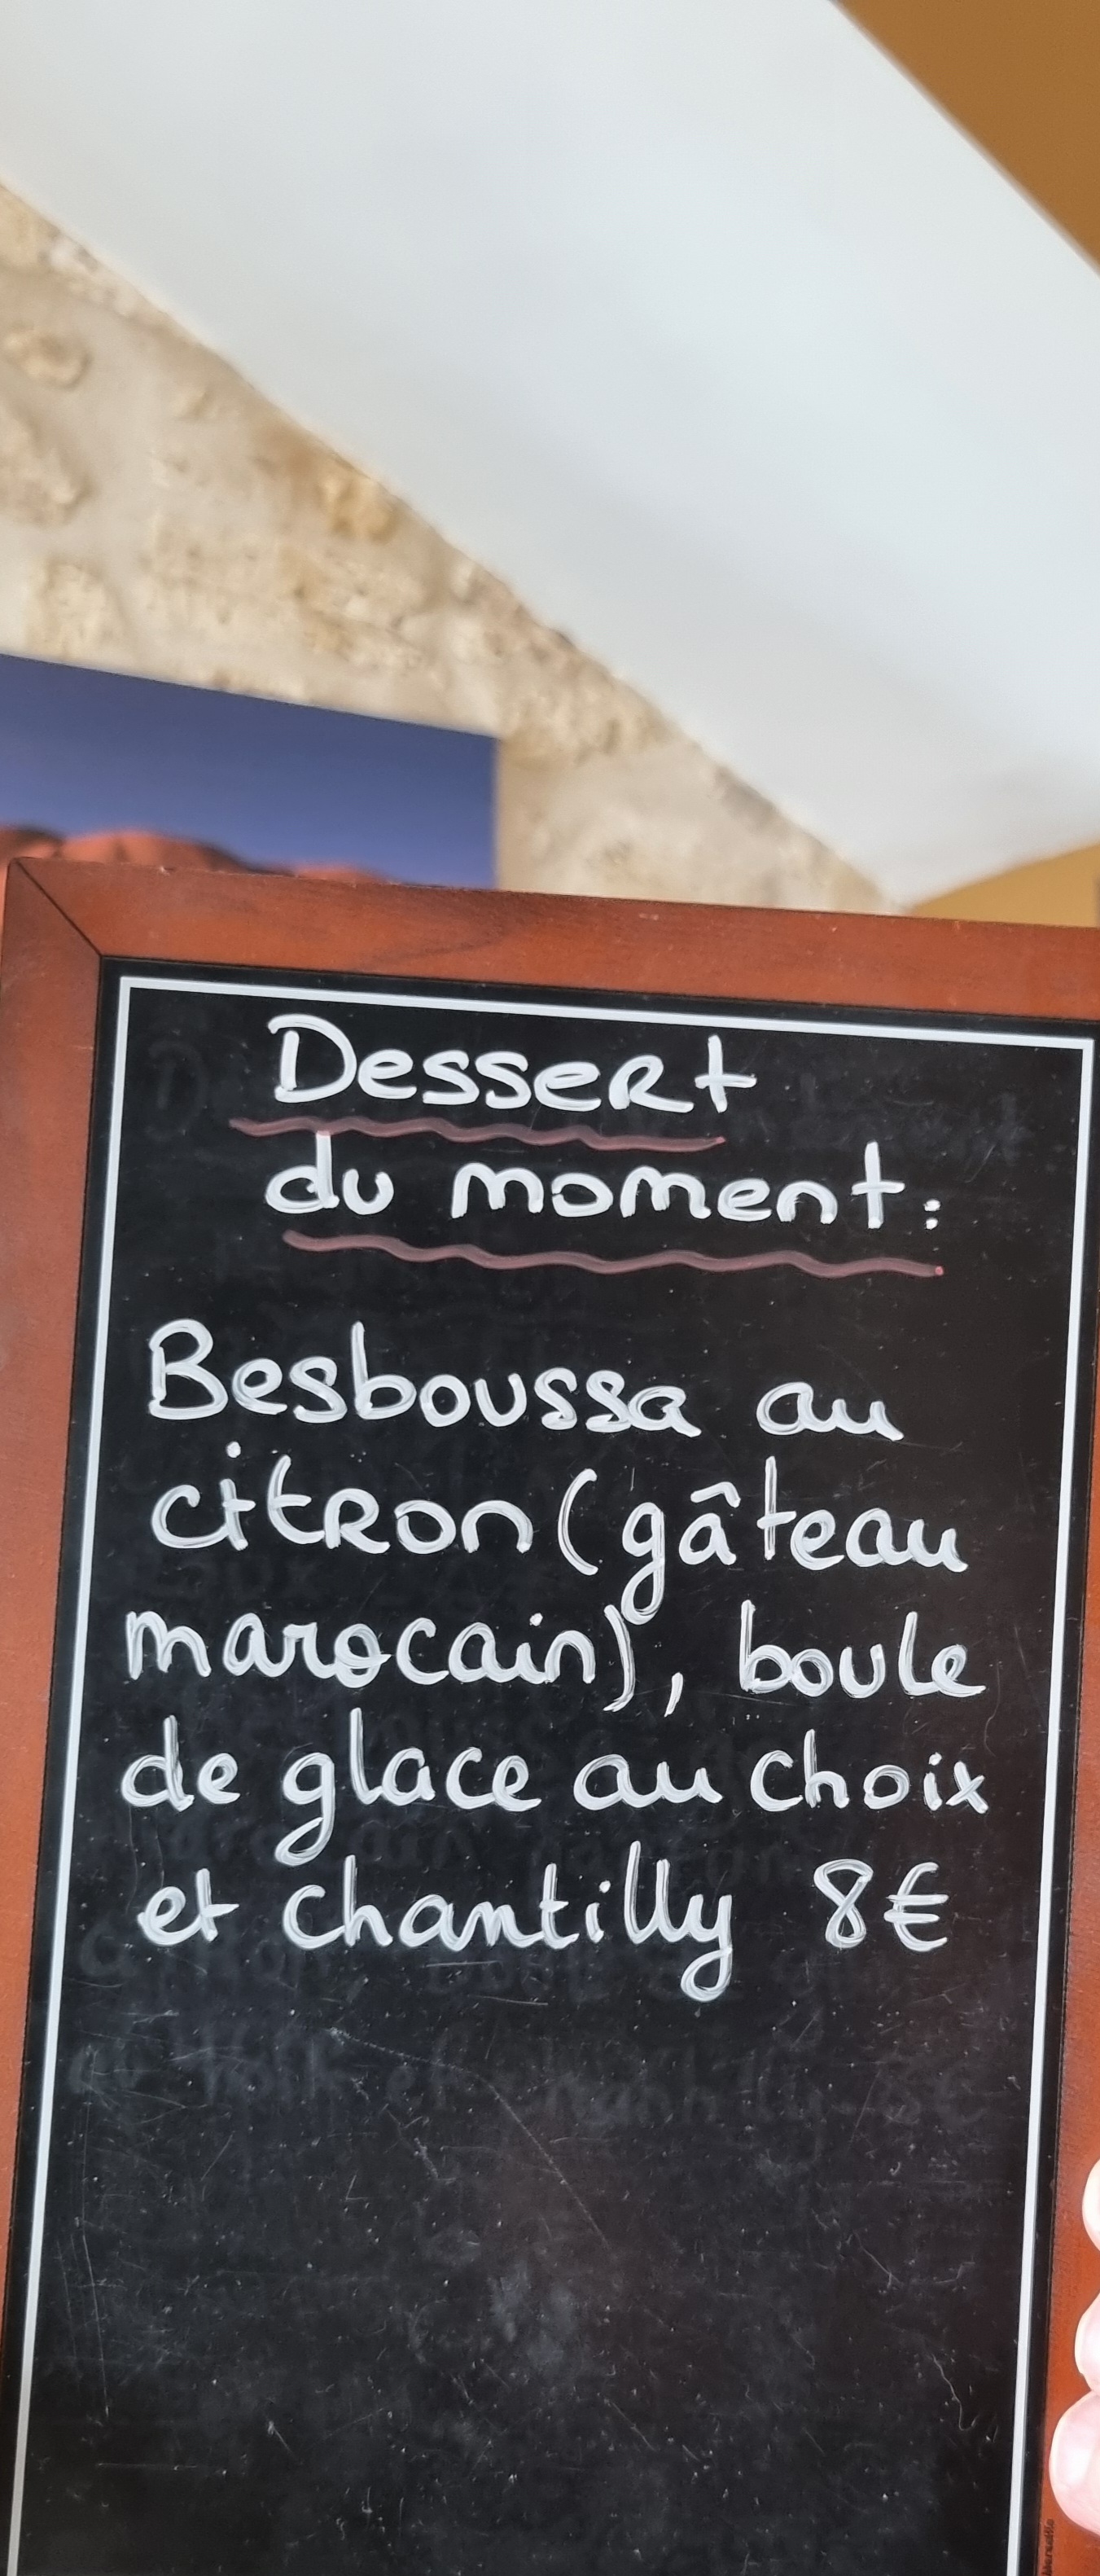 Dessert
du moment:
Besboussa au
citron (gâteau
marocain), boule
de glace au choix
et chantilly 8€